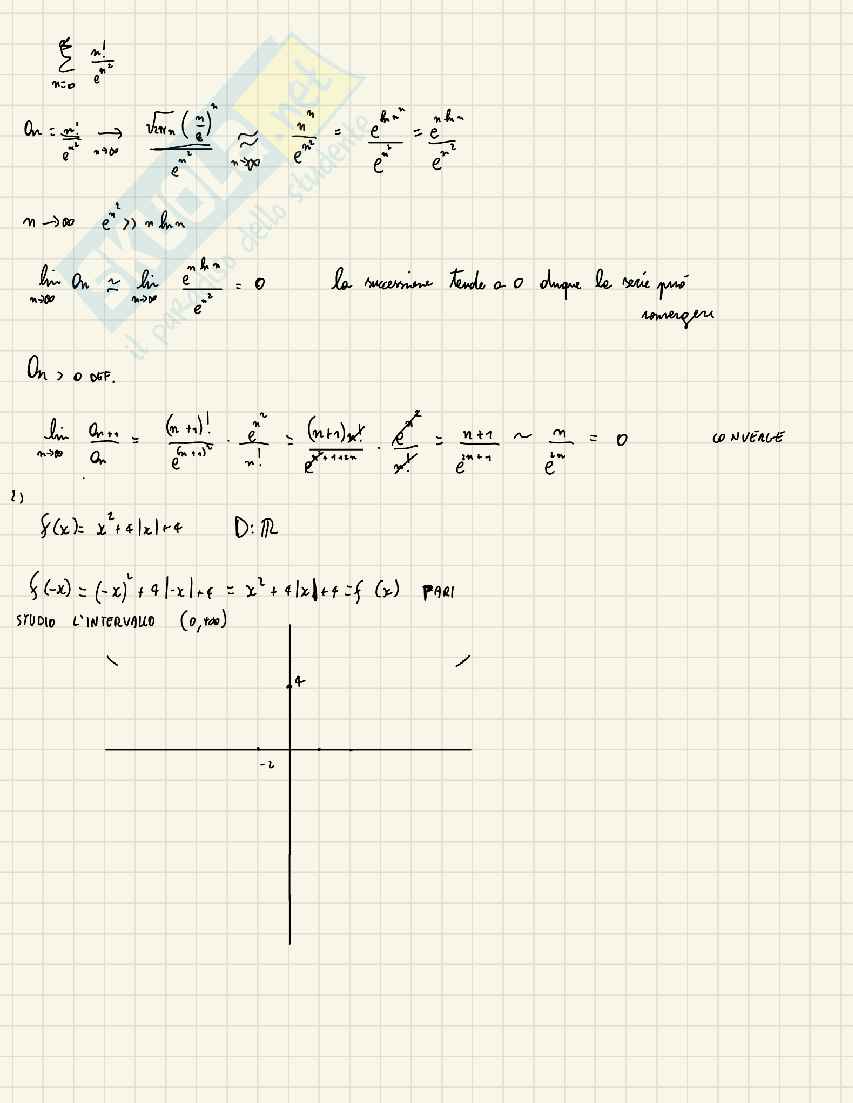 ∞ Σ n=0 n!/e^{n^2}
an = n!/e^{n^2} → n→∞ √2πn (n/e)^n / e^{n^2} ≈ n→∞ n^n/e^{n^2} = e^{ln n^n}/e^{n^2} = e^{n ln n}/e^{n^2}
n→∞ e^{n^2} >> n ln n
lim n→∞ an ≃ lim n→∞ e^{n ln n}/e^{n^2} = 0 la successione tende a 0 dunque la serie può
convergere
an > 0 DEF.
lim n→∞ an+1/an = (n+1)!/e^{(n+1)^2} · e^{n^2}/n! = (n+1)n!/e^{n^2+1+2n} · e^{n^2}/n! = n+1/e^{2n+1} ~ n/e^{2n} = 0 CONVERGE
2)
f(x) = x^2+4|x|+4 D: ℝ
f(-x) = (-x)^2+4|-x|+4 = x^2+4|x|+4 = f(x) PARI
STUDIO L'INTERVALLO (0,+∞)
4
-2
SKUOLA.net
il paradiso dello studente